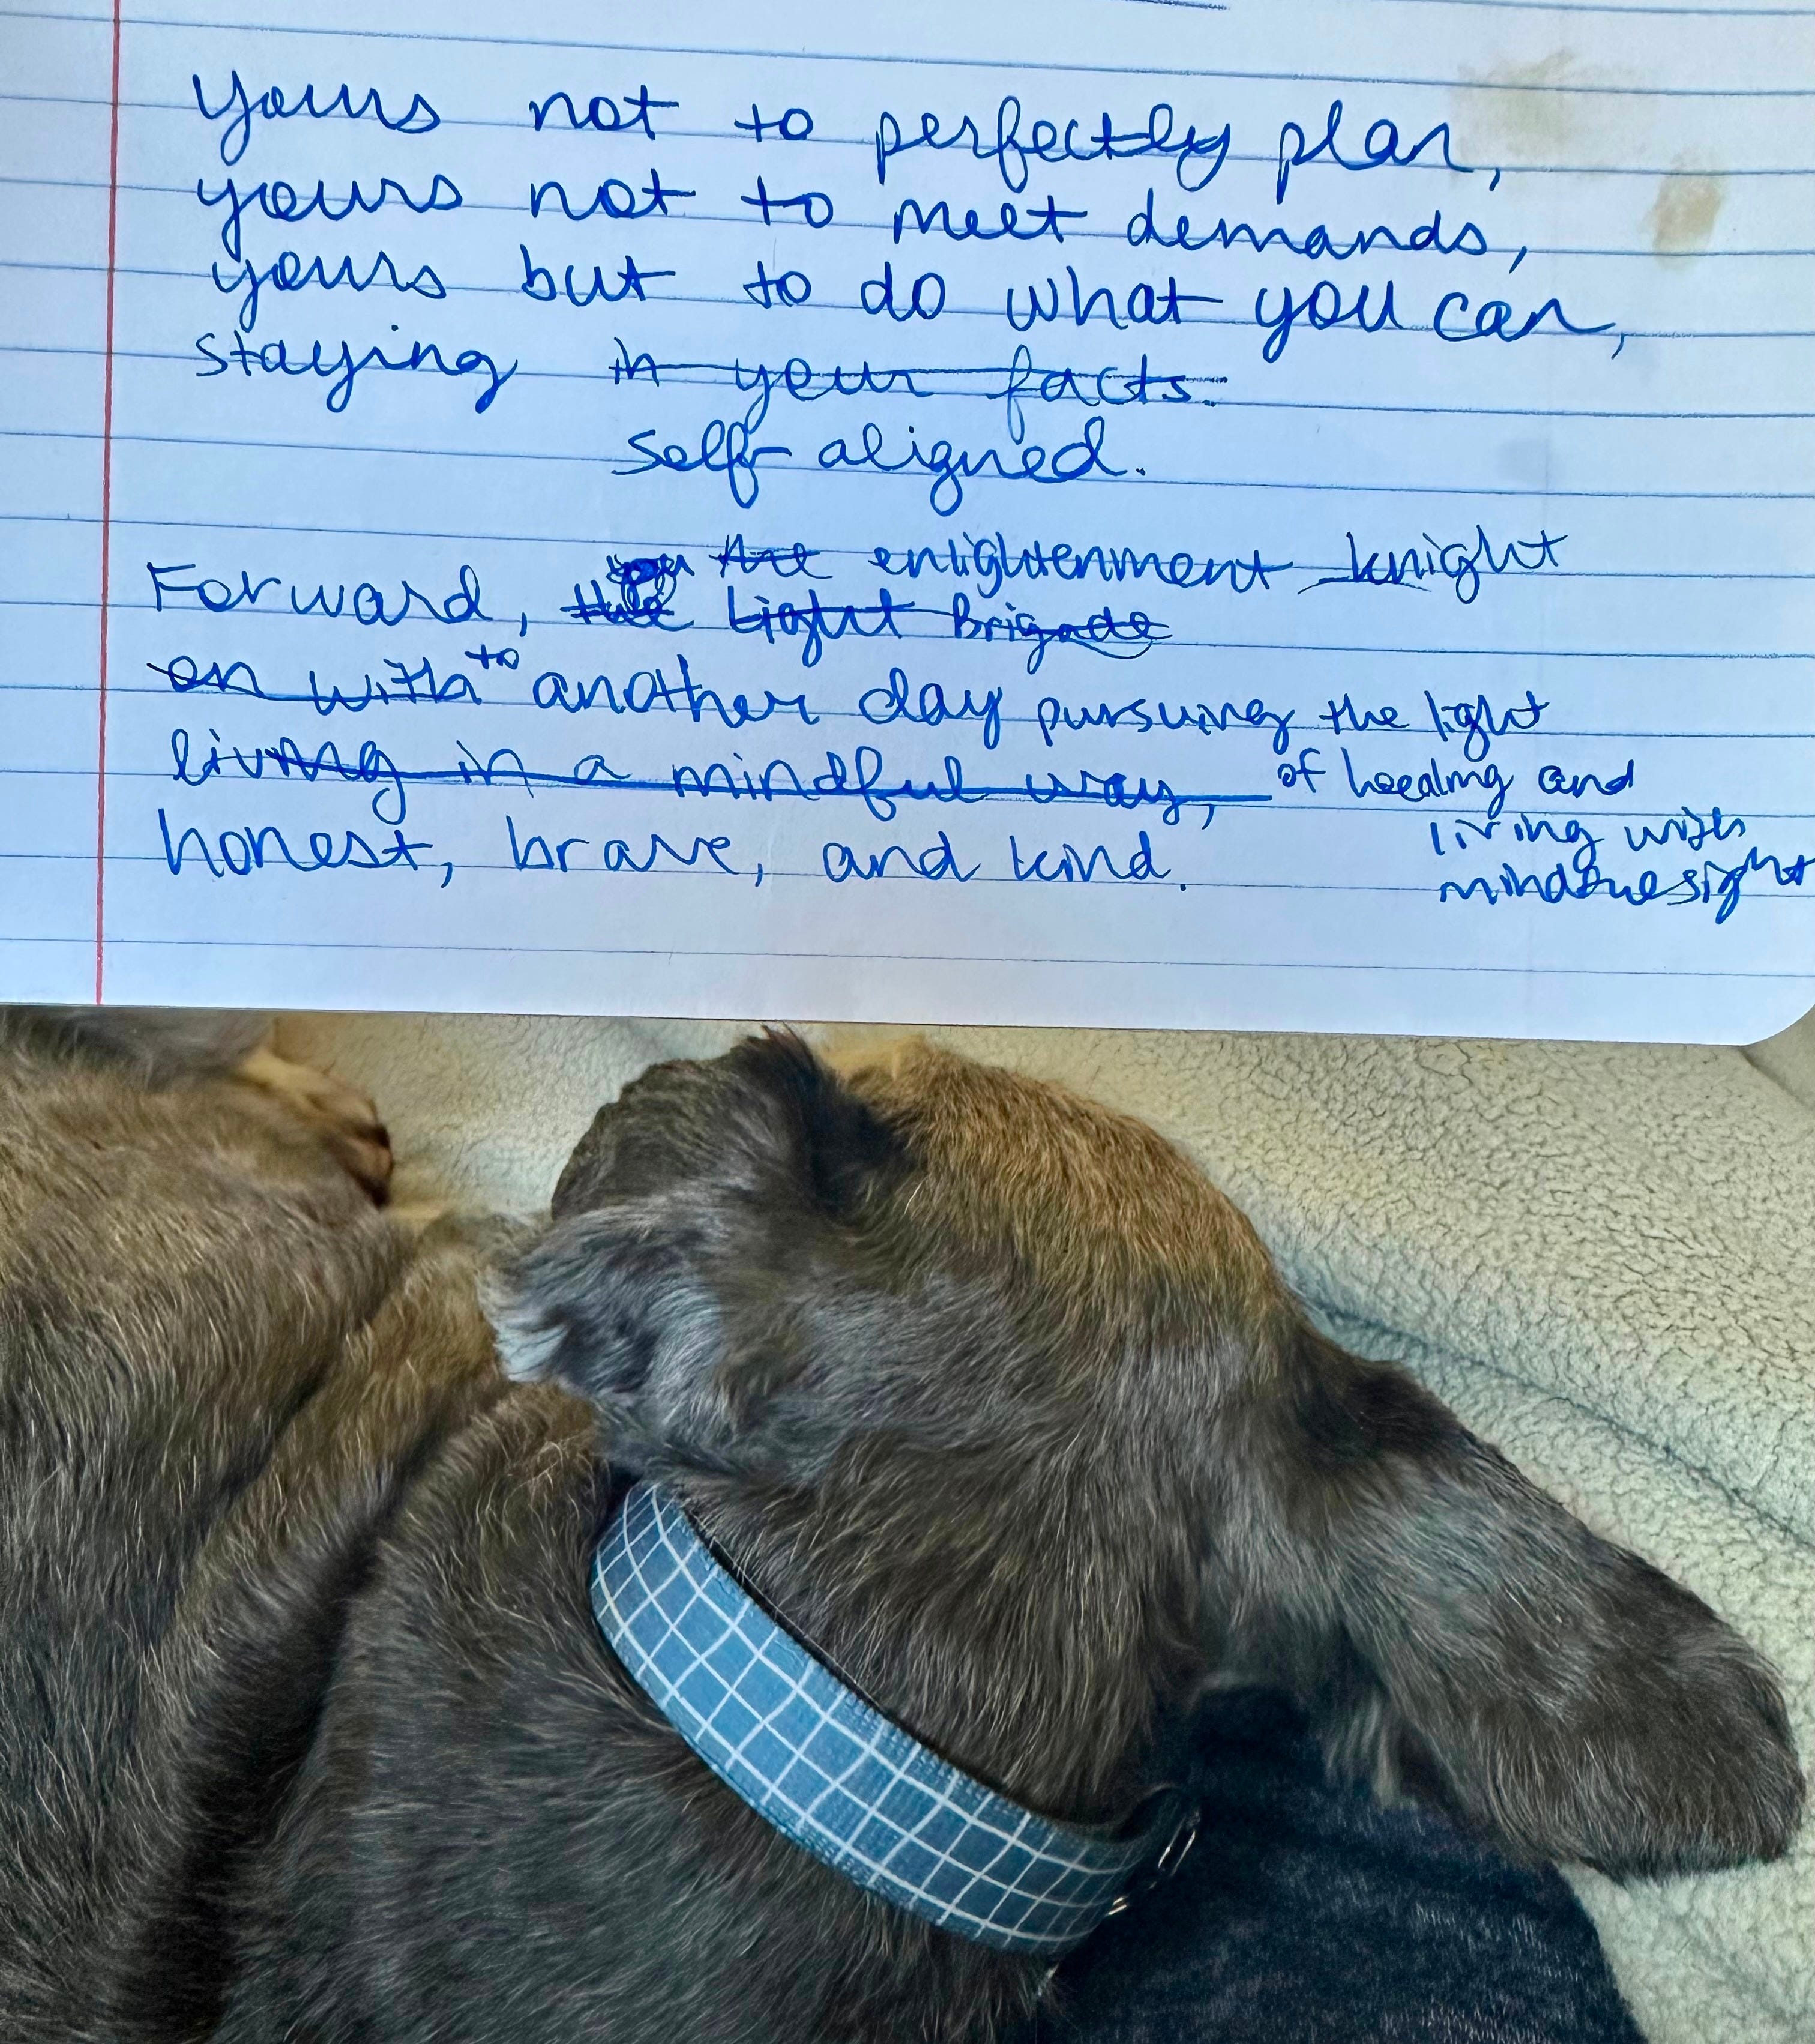 yours not to perfectly plan,
yours not to meet demands,
yours but to do what you can,
staying in your facts.
self-aligned.
the enlightenment knight
Forward, the Light Brigade
on with to another day pursuing the light
living in a mindful way, of healing and
honest, brave, and kind. living with